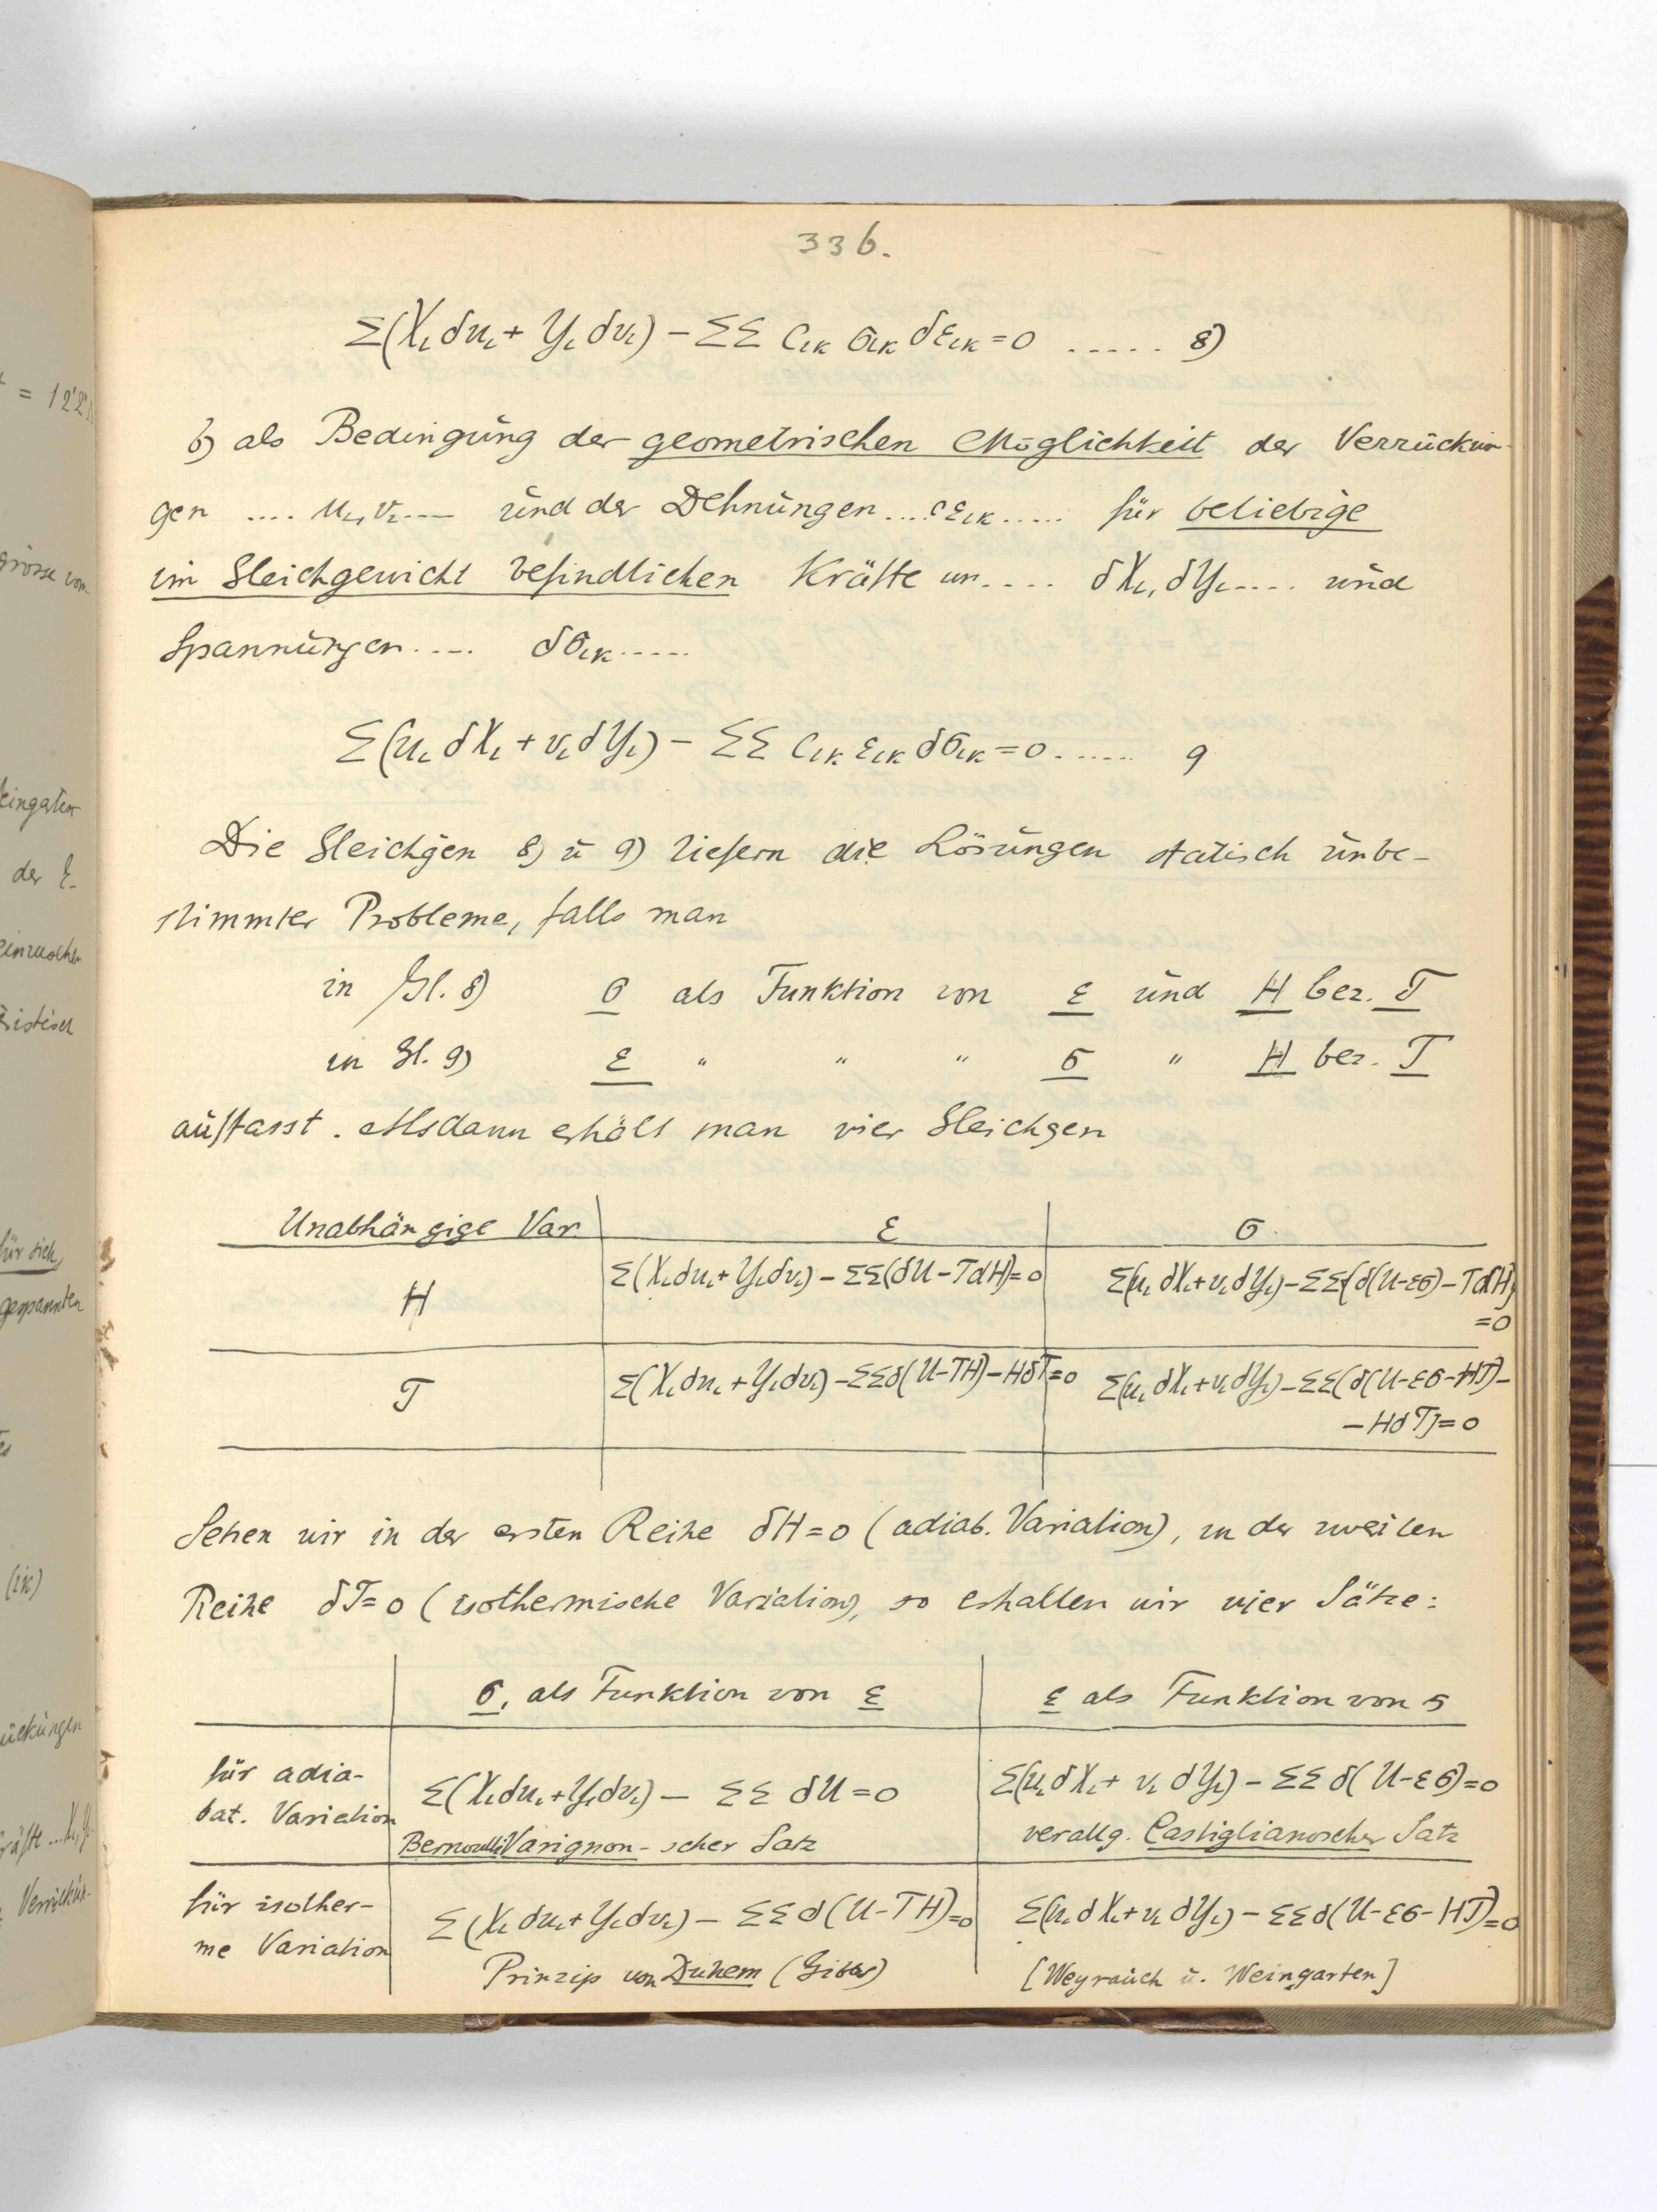 336.
Σ(Xᵢ δuᵢ + Yᵢ δvᵢ) − ΣΣ cᵢₖ σᵢₖ δεᵢₖ = 0 ..... 8)
b) als Bedingung der geometrischen Möglichkeit der Verrückun-
gen .... uᵢ, vᵢ .... und der Dehnungen .... εᵢₖ ..... für beliebige
im Gleichgewicht befindlichen Kräfte .... δXᵢ, δYᵢ .... und
Spannungen .... δσᵢₖ .....
Σ(uᵢ δXᵢ + vᵢ δYᵢ) − ΣΣ cᵢₖ εᵢₖ δσᵢₖ = 0 ...... 9
Die Gleichgen 8) u 9) liefern die Lösungen statisch unbe-
stimmter Probleme, falls man
in Gl. 8) σ als Funktion von ε und H bez. T
in Gl. 9) ε " " " σ " H bez. T
auffasst. Alsdann erhält man vier Gleichgen
Unabhängige Var. ε σ.
H Σ(Xᵢ δuᵢ + Yᵢ δvᵢ) − ΣΣ(δU − TδH) = 0 Σ(uᵢ δXᵢ + vᵢ δYᵢ) − ΣΣ{δ(U−εσ) − TδH}
= 0
T Σ(Xᵢ δuᵢ + Yᵢ δvᵢ) − ΣΣδ(U−TH) − HδT = 0 Σ(uᵢ δXᵢ + vᵢ δYᵢ) − ΣΣ(δ(U−εσ−HT) −
− HδT) = 0
Setzen wir in der ersten Reihe δH = 0 (adiab. Variation), in der zweiten
Reihe δT = 0 (isothermische Variation), so erhalten wir vier Sätze:
σ, als Funktion von ε ε als Funktion von σ
für adia-
bat. Variation
Σ(Xᵢ δuᵢ + Yᵢ δvᵢ) − ΣΣ δU = 0
Bernoulli Varignon-scher Satz
Σ(uᵢ δXᵢ + vᵢ δYᵢ) − ΣΣ δ(U−εσ) = 0
verallg. Castiglianoscher Satz
für isother-
me Variation
Σ(Xᵢ δuᵢ + Yᵢ δvᵢ) − ΣΣ δ(U−TH) = 0
Prinzip von Duhem (Gibbs)
Σ(uᵢ δXᵢ + vᵢ δYᵢ) − ΣΣδ(U−εσ−HT) = 0
[Weyrauch u. Weingarten]